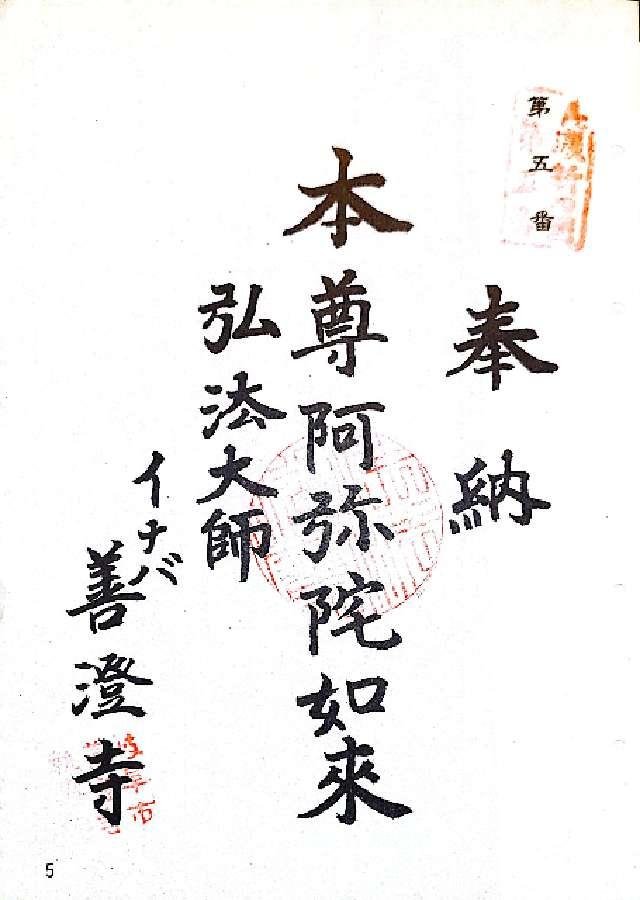 第五番
奉納
本尊阿弥陀如來
弘法大師
イナバ
善澄寺
岐阜市
5